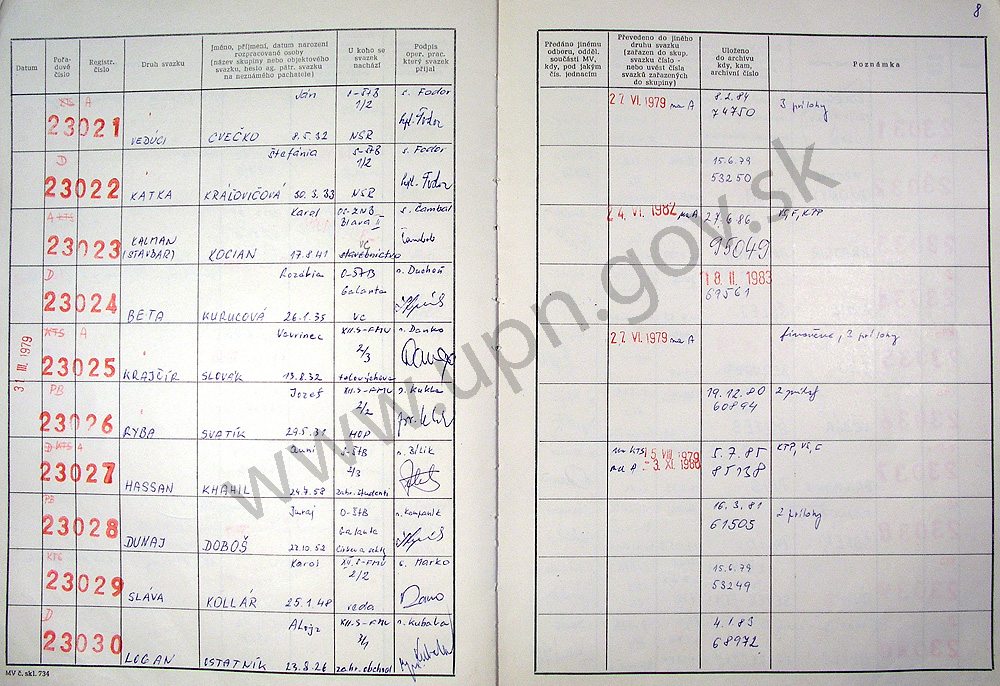 8
Datum
Pořadové číslo
Registr. číslo
Druh svazku
Jméno, příjmení, datum narození rozpracované osoby (název skupiny nebo objektového svazku, heslo ag. pátr. svazku na neznámého pachatele)
U koho se svazek nachází
Podpis oper. prac. který svazek přijal
Předáno jinému odboru, odděl. součásti MV, kdy, pod jakým čís. jednacím
Převedeno do jiného druhu svazku (zařazen do skup. svazku číslo - nebo uvést čísla svazků zařazených do skupiny)
Uloženo do archivu kdy, kam, archivní číslo
Poznámka
KTS A
23021
VEDÚCI
Ján
CVEČKO 8.5.32
S-ŠTB
1/2
NSR
s. Fodor
27. VI. 1979 na A
8.2.84
74750
3 prílohy
D
23022
KATKA
Štefánia
KRÁĽOVIČOVÁ 30.3.33
S-ŠTB
1/2
NSR
s. Fodor
15.6.79
53250
A KTS
23023
KALMAN
(STAVBAR)
Karol
KOCIAN 17.8.41
OS-ZNB
Blava II
stavebníctvo
s. Čambal
24. VI. 1982 na A
27.6.86
95049
D
23024
BETA
Rozália
KURUCOVÁ 26.1.35
O-ŠTB
Galanta
VC
s. Duchoň
18. II. 1983
69561
31. III. 1979
KTS A
23025
KRAJČÍR
Vavrinec
SLOVÁK 13.8.32
XII.S-FMV
2/3
s. Danko
27. VI. 1979 na A
3 prílohy
PB
23026
RYBA
Jozef
SVATÍK 29.5.31
XII.S-FMV
2/2
HOP
s. Kukla
19.12.80
60894
D KTS A
23027
HASSAN
KHAHIL 24.7.58
S-ŠTB
2/3
zahr. študenti
s. Bílik
na KTS 15. VIII. 1979
na A - 3. XI. 1980
5.7.85
85138
PB
23028
DUNAJ
Juraj
DOBOŠ 22.10.52
O-ŠTB
Galanta
16.3.81
61505
2 prílohy
KTS
23029
SLÁVA
Karol
KOLLÁR 25.1.48
XII.S-FMV
2/2
veda
s. Marko
15.6.79
53249
D
23030
LOGAN
Alojz
OSTATNÍK 23.8.26
XII.S-FMV
3/1
zahr. obchod
s. Kubala
4.1.83
68972
MV č. skl. 734
www.upn.gov.sk